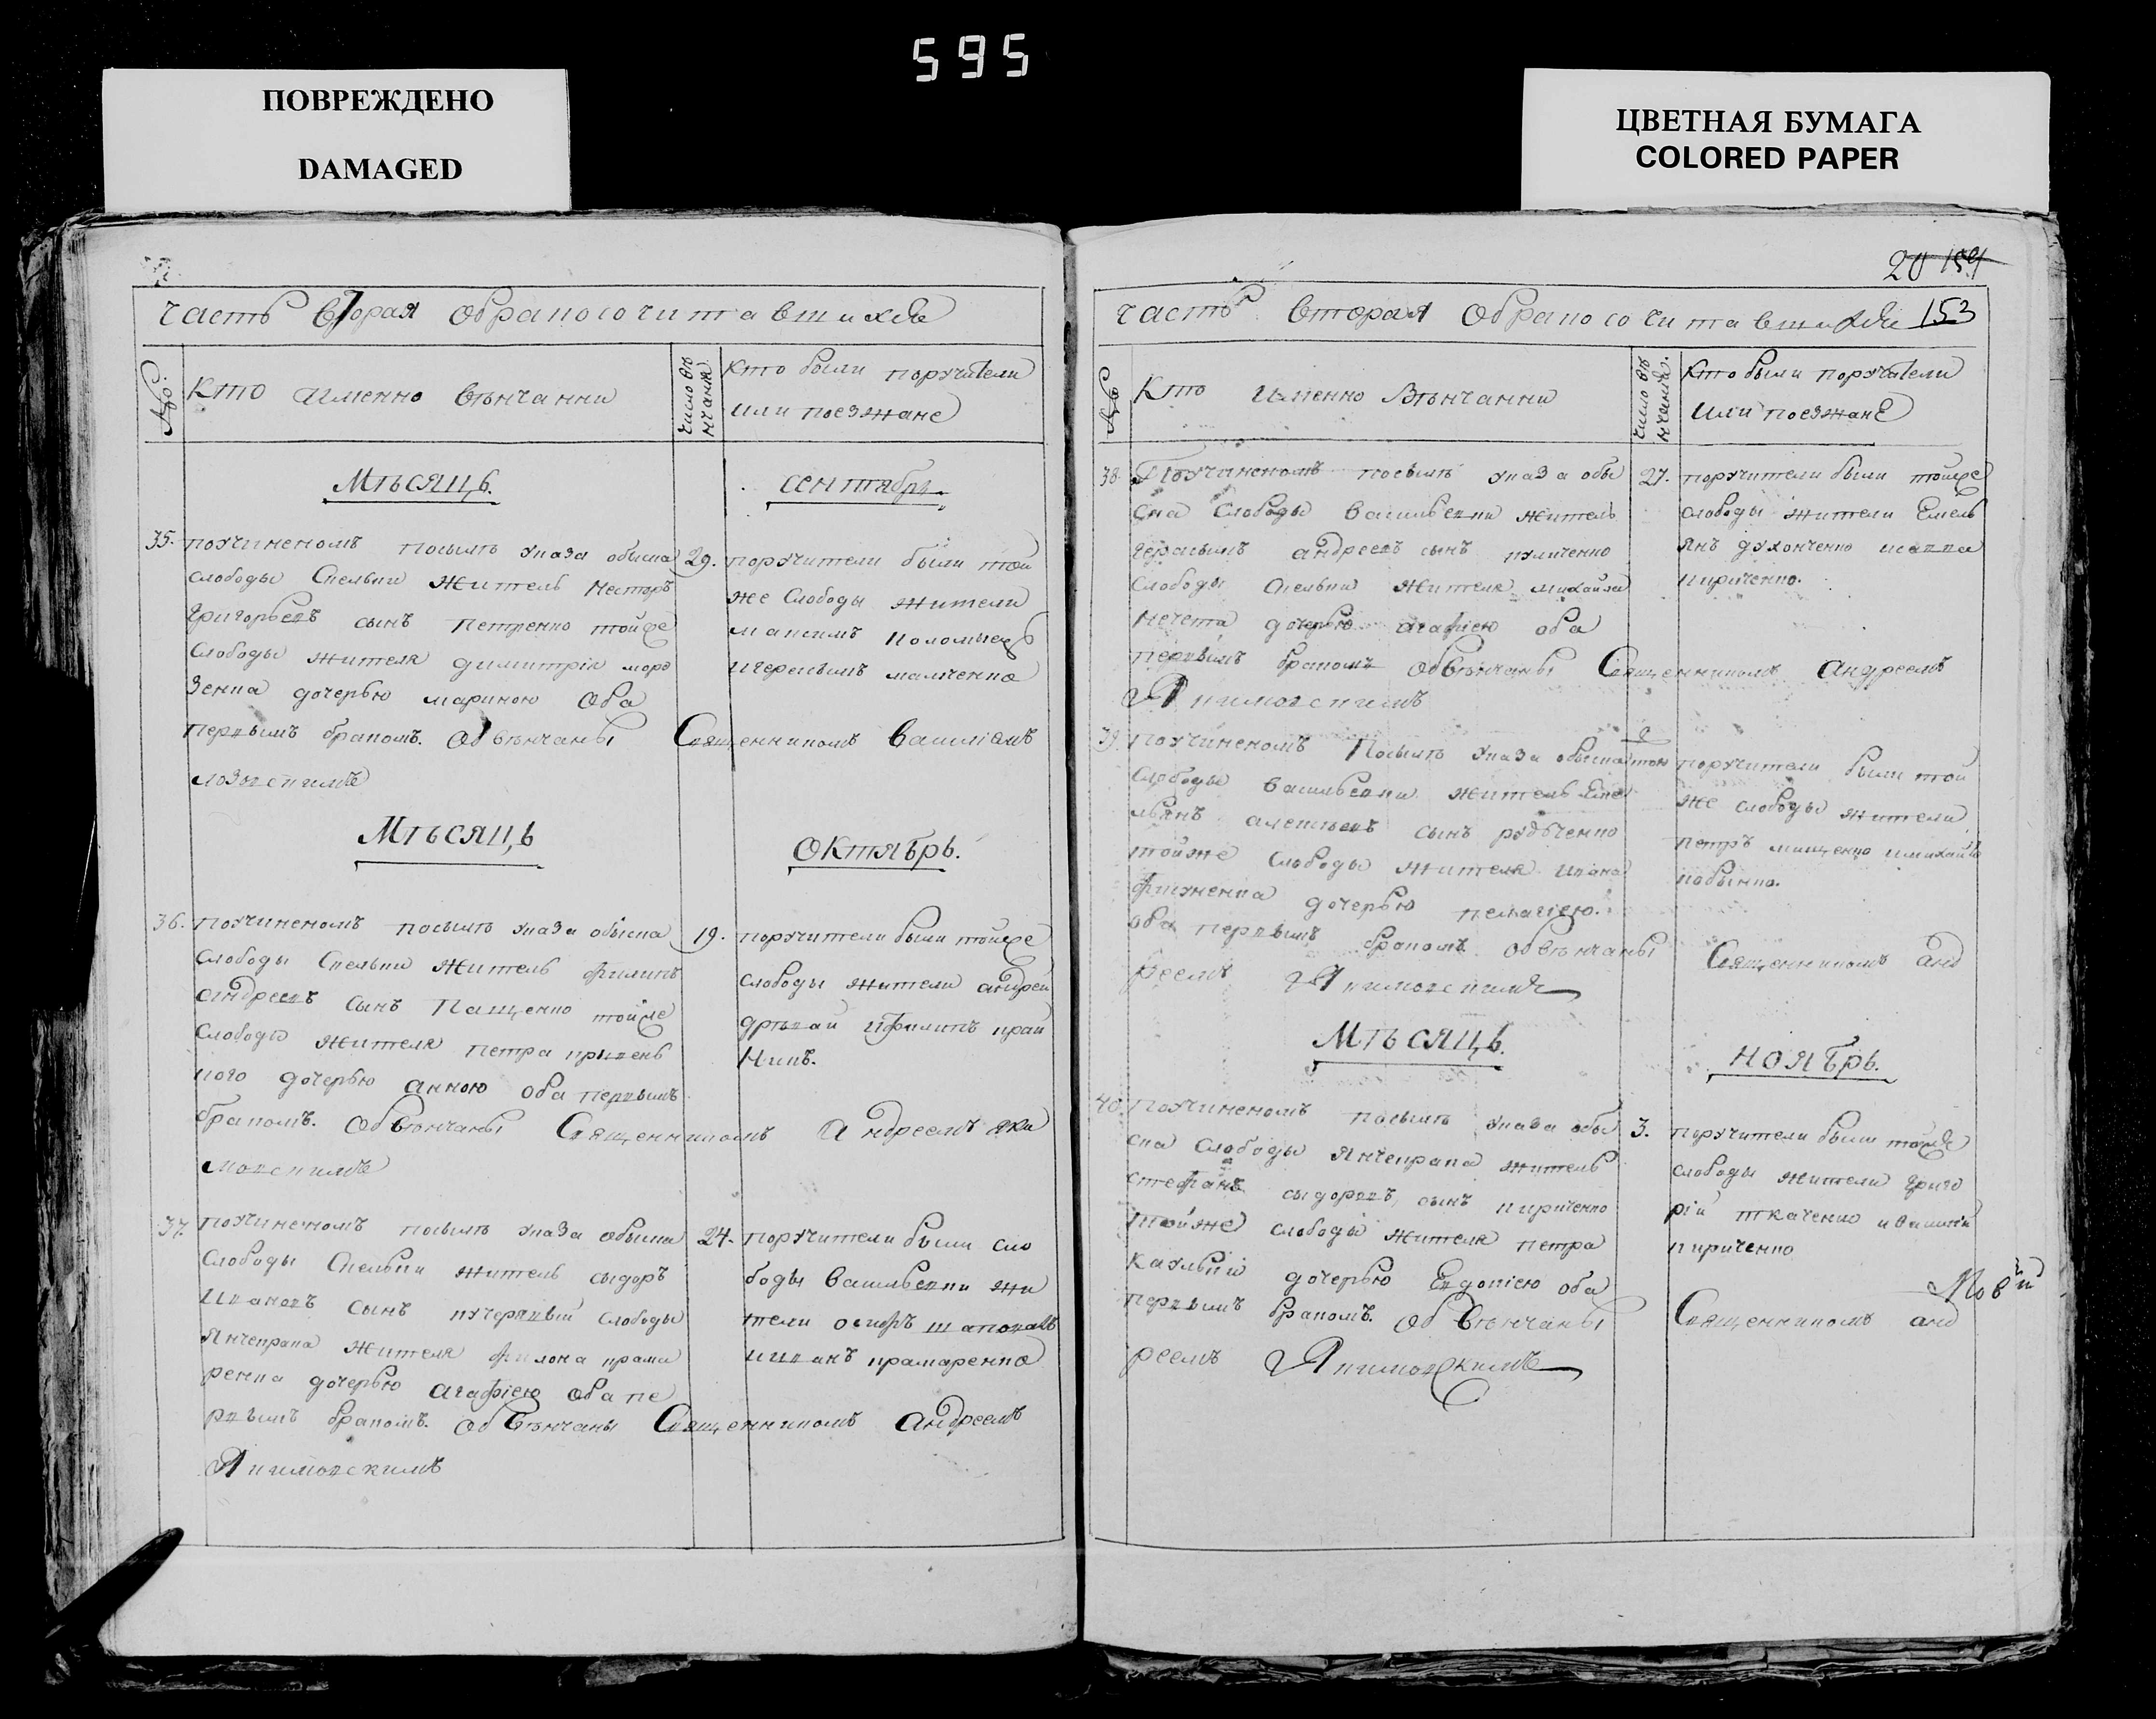 595
ПОВРЕЖДЕНО
DAMAGED
ЦВЕТНАЯ БУМАГА
COLORED PAPER
часть вторая обракосочитавшихся
№.
кто именно вѣнчанни
число вѣнчанія.
кто были поручители
или поезжане
Мѣсяцъ.
сентябрь.
35.
поучиненомъ посылѣ указа обыска
слободы Спевки житель Несторъ
Григорьевъ сынъ Петренко тойже
слободы жителя Димитрія моро
зенка дочерью мариною оба
первымъ бракомъ. обвѣнчаны Священникомъ Василіемъ
29.
поручители были той
же слободы жители
максимъ коломыецъ
Мѣсяцъ
октябрь.
36.
поучиненомъ посылѣ указа обыска
слободы Спевки житель Филипъ
андреевъ сынъ Пащенко тойже
слободы жителя петра
кого дочерью анною оба первымъ
бракомъ. обвѣнчаны Священникомъ Андреемъ яки
мовскимъ
19.
поручители были тойже
слободы жители андрей
ифилипъ край
никъ.
37.
поучиненомъ посылѣ указа обыска
слободы Спевки житель сыдоръ
ивановъ сынъ кучерявый слободы
Янчекрака жителя Филона крама
ренка дочерью агафіею оба пе
рвымъ бракомъ. обвѣнчаны Священникомъ андреемъ
Якимовскимъ
24.
поручители были сло
боды васильевки жи
тели осипъ шаповалъ
ииванъ крамаренко
20 154
часть вторая обракосочитавшихся 153
№
кто именно Вѣнчанни
число вѣнчанія.
кто были поручатели
или поезжане
38.
Поучиненомъ посылѣ указа обы
ска слободы васильевки житель
герасымъ андреевъ сынъ куличенко
слободы Спевки жителя михайла
нечета дочерью агафіею оба
первымъ бракомъ обвѣнчаны Священникомъ андреемъ
Якимовскимъ
27.
поручители были тойже
слободы жители Емель
янъ
кириченко.
39.
поучиненомъ посылѣ указа обыска
слободы васильевки житель Еме
льянъ алексѣевъ сынъ рудченко
тойже слободы жителя ивана
дочерью пелагіею.
оба первымъ бракомъ обвѣнчаны Священникомъ анд
реемъ Якимовскимъ
поручители были той
же слободы жители
петръ мищенко имихайла
кобылко.
Мѣсяцъ.
ноябрь.
40.
поучиненомъ посылѣ указа обы
ска слободы Янчекрака житель
стефанъ сыдоровъ сынъ кириченко
тойже слободы жителя петра
дочерью Евдокіею оба
первымъ бракомъ. обвѣнчаны Священникомъ анд
реемъ Якимовскимъ
3.
поручители были тойже
слободы жители григо
рій ткаченко ивасилій
кириченко